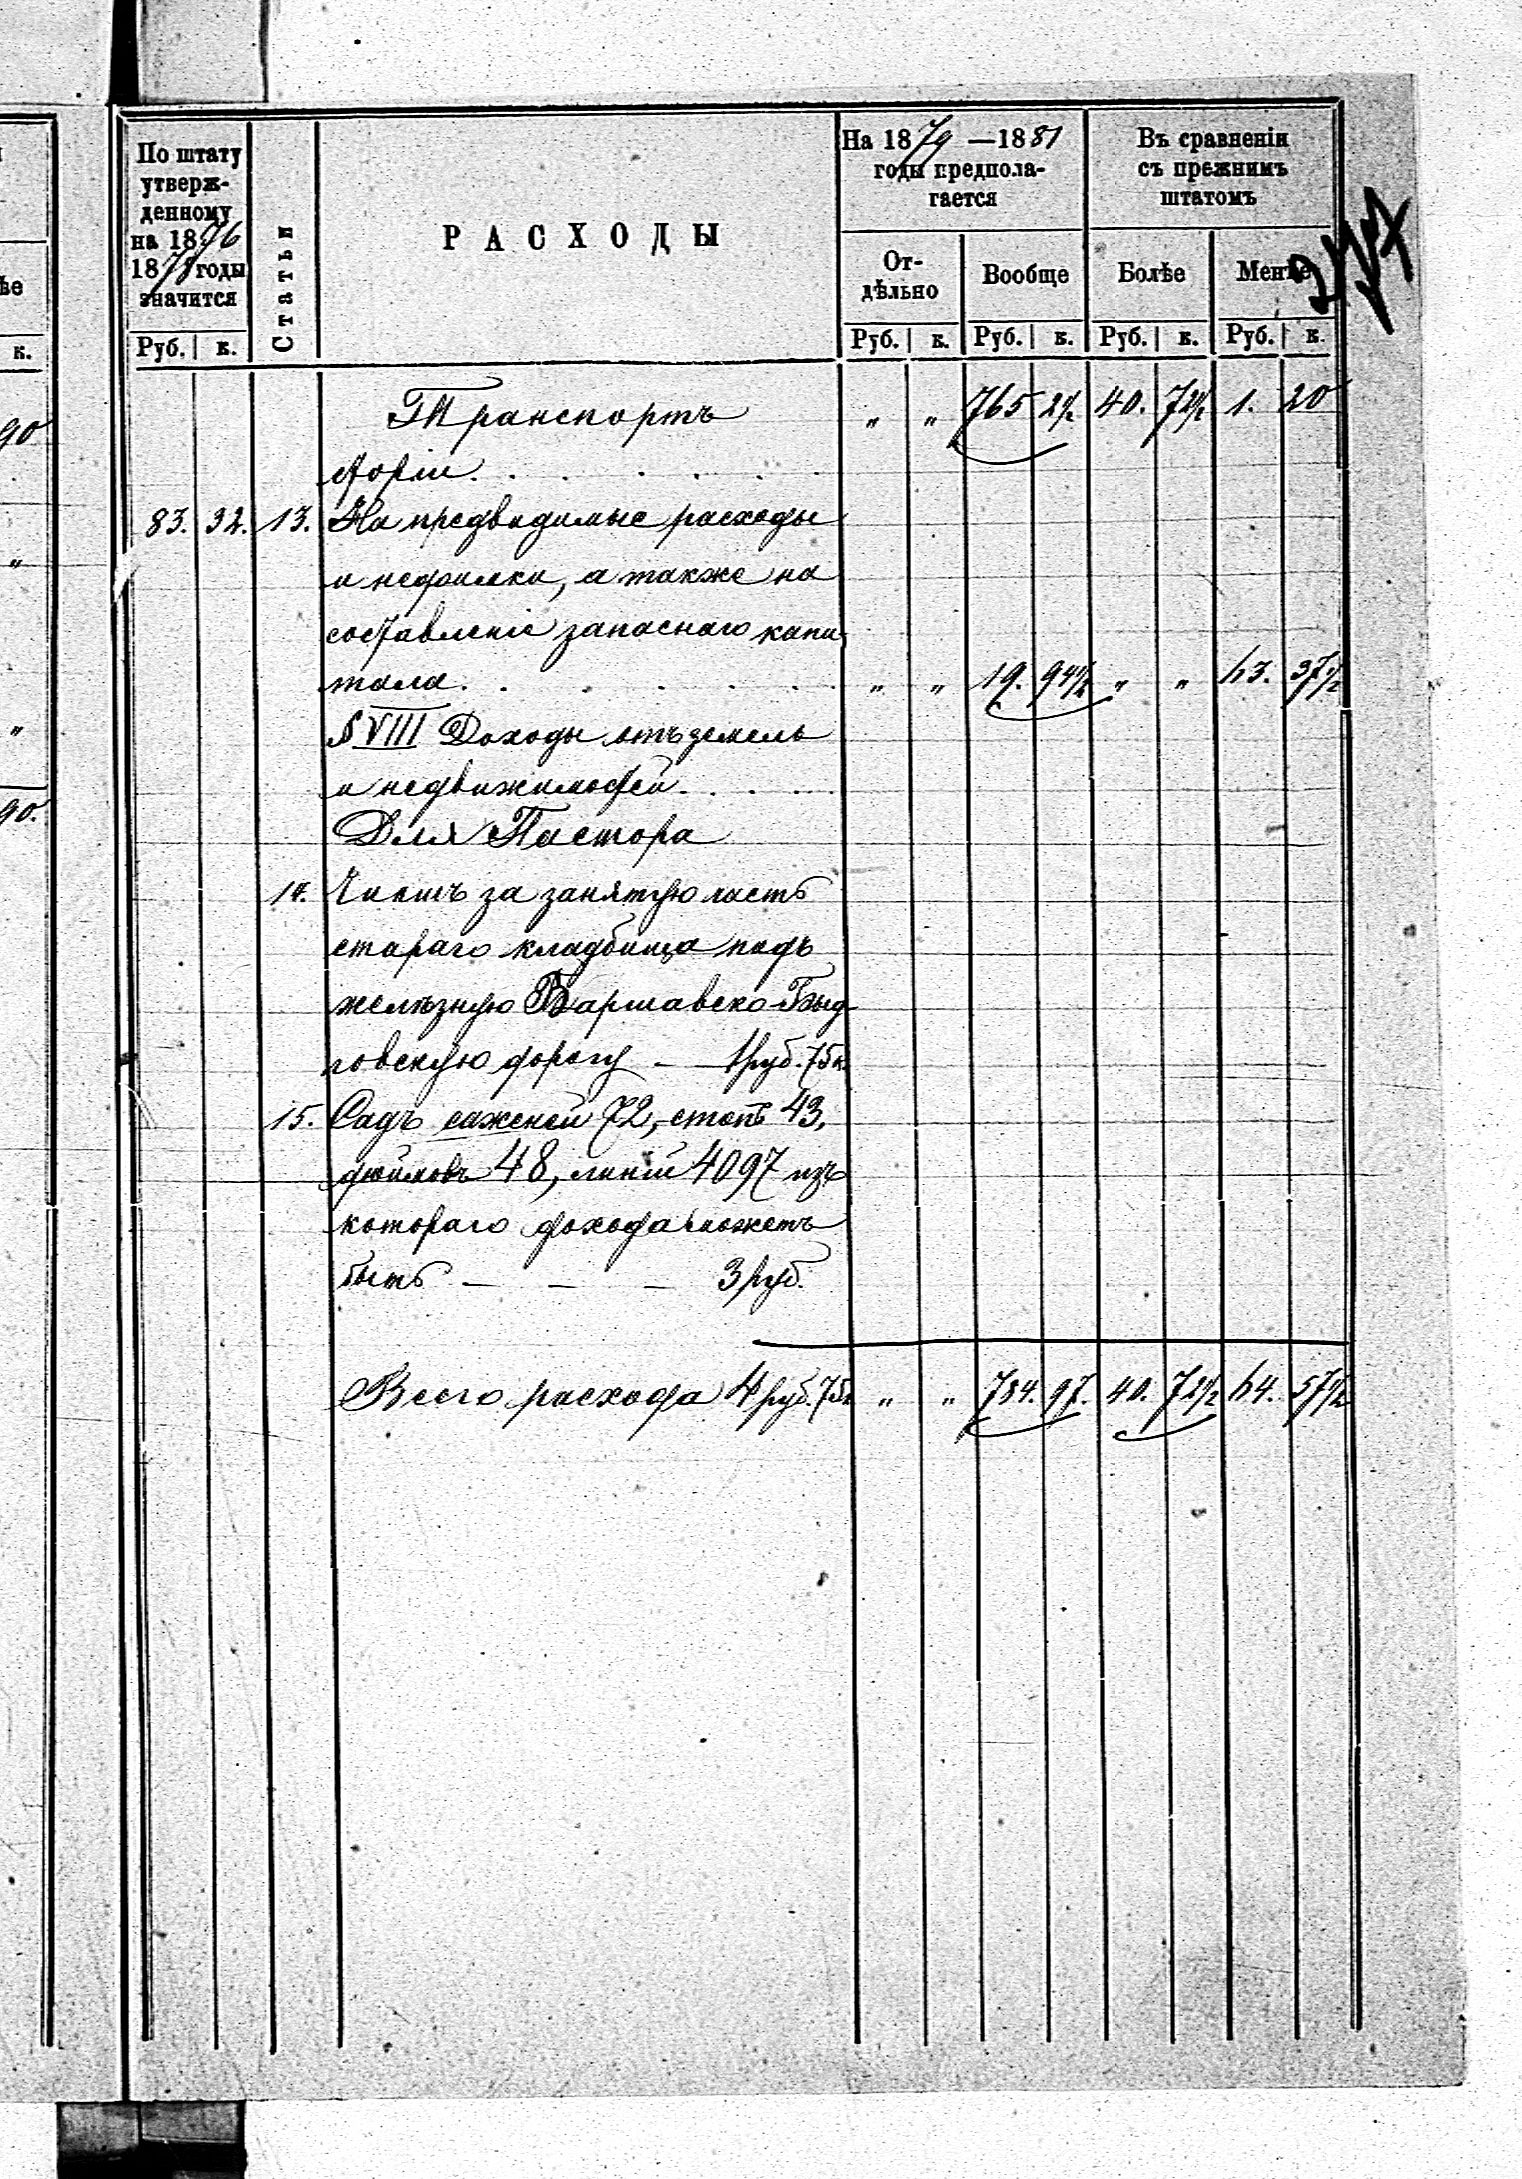 По штату утверж-
денному
на 1876
1878 годы
значится
Руб. к.
Статьи
РАСХОДЫ
На 1879 —1881
годы предпола-
гается
От-
дѣльно
Вообще
Руб. к. Руб. к.
Въ сравненіи
съ прежнимъ
штатомъ
Болѣе
Менѣе
Руб. к. Руб. к.
Транспортъ " " 765 2½ 40. 72½ 1. 20
. . . . .
83. 32. 13. На предвидимые расходы
и недоимки, а также на
составленіе запаснаго капи
тала. . . . . . . " " 19. 94½ " " 63. 37½
§ VIII Доходы отъ земель
и недвижимостей. . . .
Для Пастора
14. Чиншъ за занятую часть
стараго кладбища подъ
желѣзную Варшавско-Быд
говскую дорогу — 1 руб. 75 к.
15. Садъ саженей 72, стопъ 43,
дюймовъ 48, линіи 4097 изъ
котораго дохода можетъ
быть — — — 3 руб.
Всего расхода 4 руб. 75 к " " 784. 97. 40. 72½ 64. 57½
ѣе
к.
90
"
"
90.